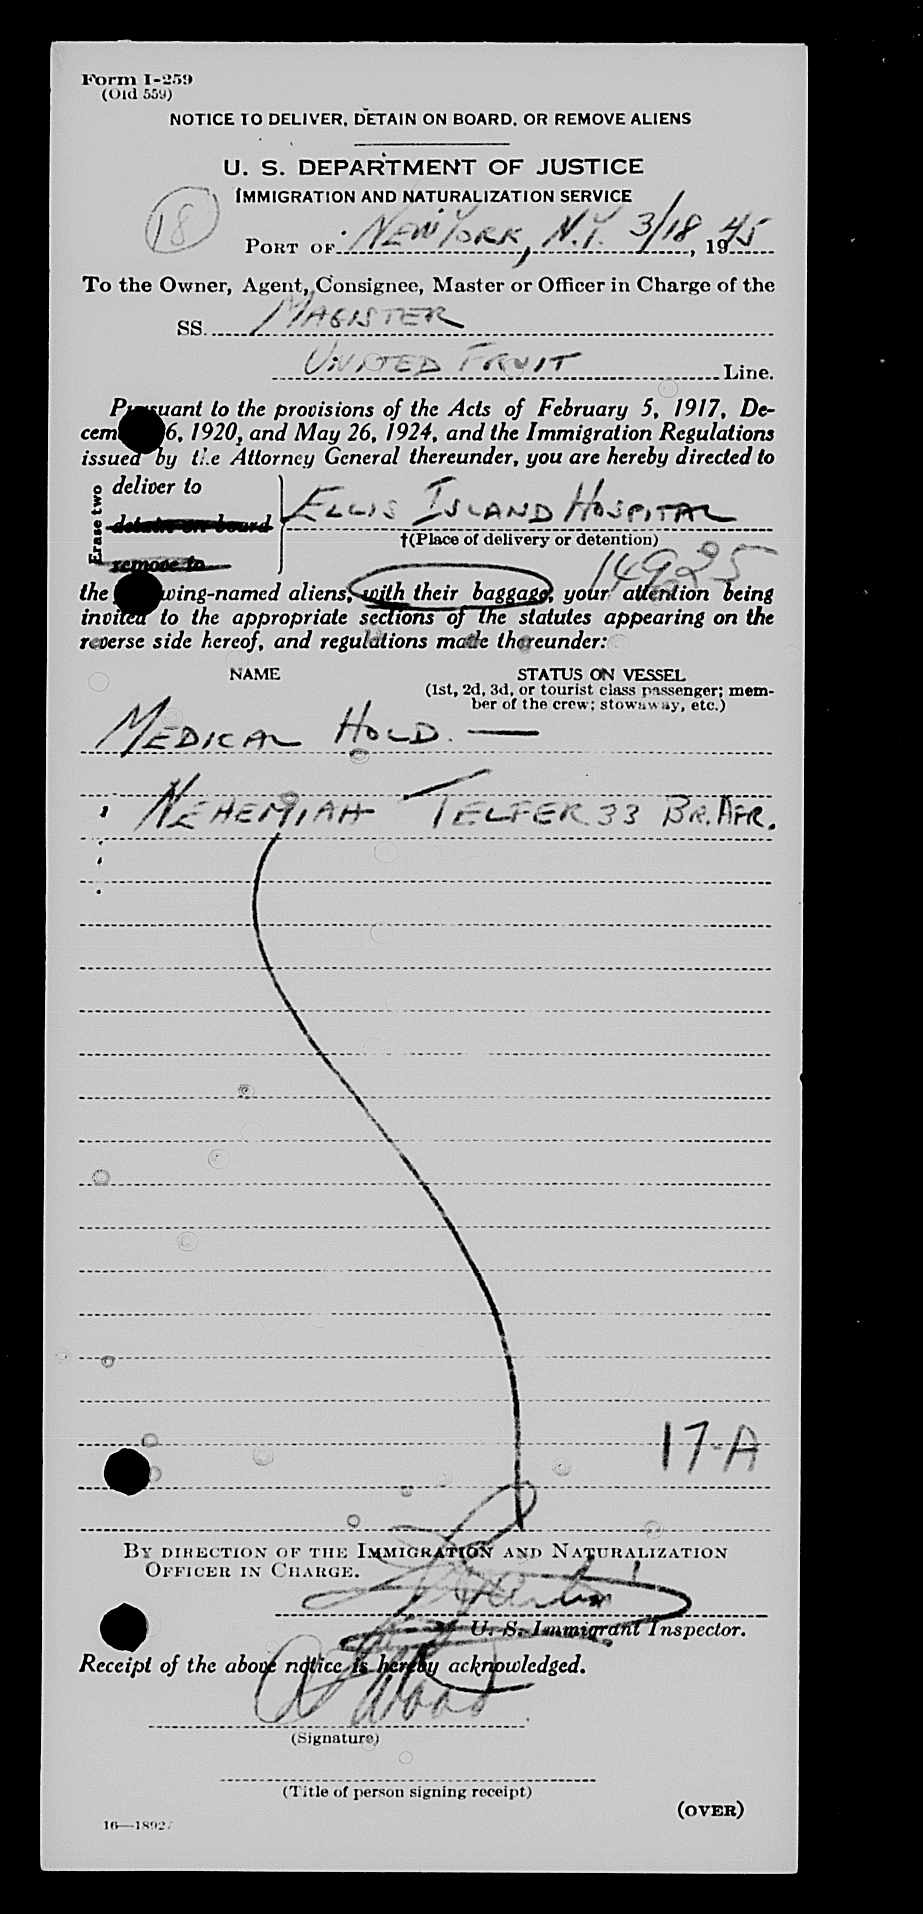 Form I-259
(Old 559)
NOTICE TO DELIVER, DETAIN ON BOARD, OR REMOVE ALIENS
U. S. DEPARTMENT OF JUSTICE
IMMIGRATION AND NATURALIZATION SERVICE
18
PORT OF NEW YORK, N.Y. 3/18, 1945
To the Owner, Agent, Consignee, Master or Officer in Charge of the
SS. MAGISTER
UNITED FRUIT Line.
Pursuant to the provisions of the Acts of February 5, 1917, De-
cem 6, 1920, and May 26, 1924, and the Immigration Regulations
issued by the Attorney General thereunder, you are hereby directed to
Erase two
deliver to
detain on board
remove to
ELLIS ISLAND HOSPITAL
†(Place of delivery or detention)
14925
the wing-named aliens, with their baggage, your attention being
invited to the appropriate sections of the statutes appearing on the
reverse side hereof, and regulations made thereunder:
NAME STATUS ON VESSEL
(1st, 2d, 3d, or tourist class passenger; mem-
ber of the crew; stowaway, etc.)
MEDICAL HOLD. —
NEHEMIAH TELFER 33 BR. AFR.
17-A
BY DIRECTION OF THE IMMIGRATION AND NATURALIZATION
OFFICER IN CHARGE.
U. S. Immigrant Inspector.
Receipt of the above notice is hereby acknowledged.
(Signature)
(Title of person signing receipt)
(OVER)
16—18927